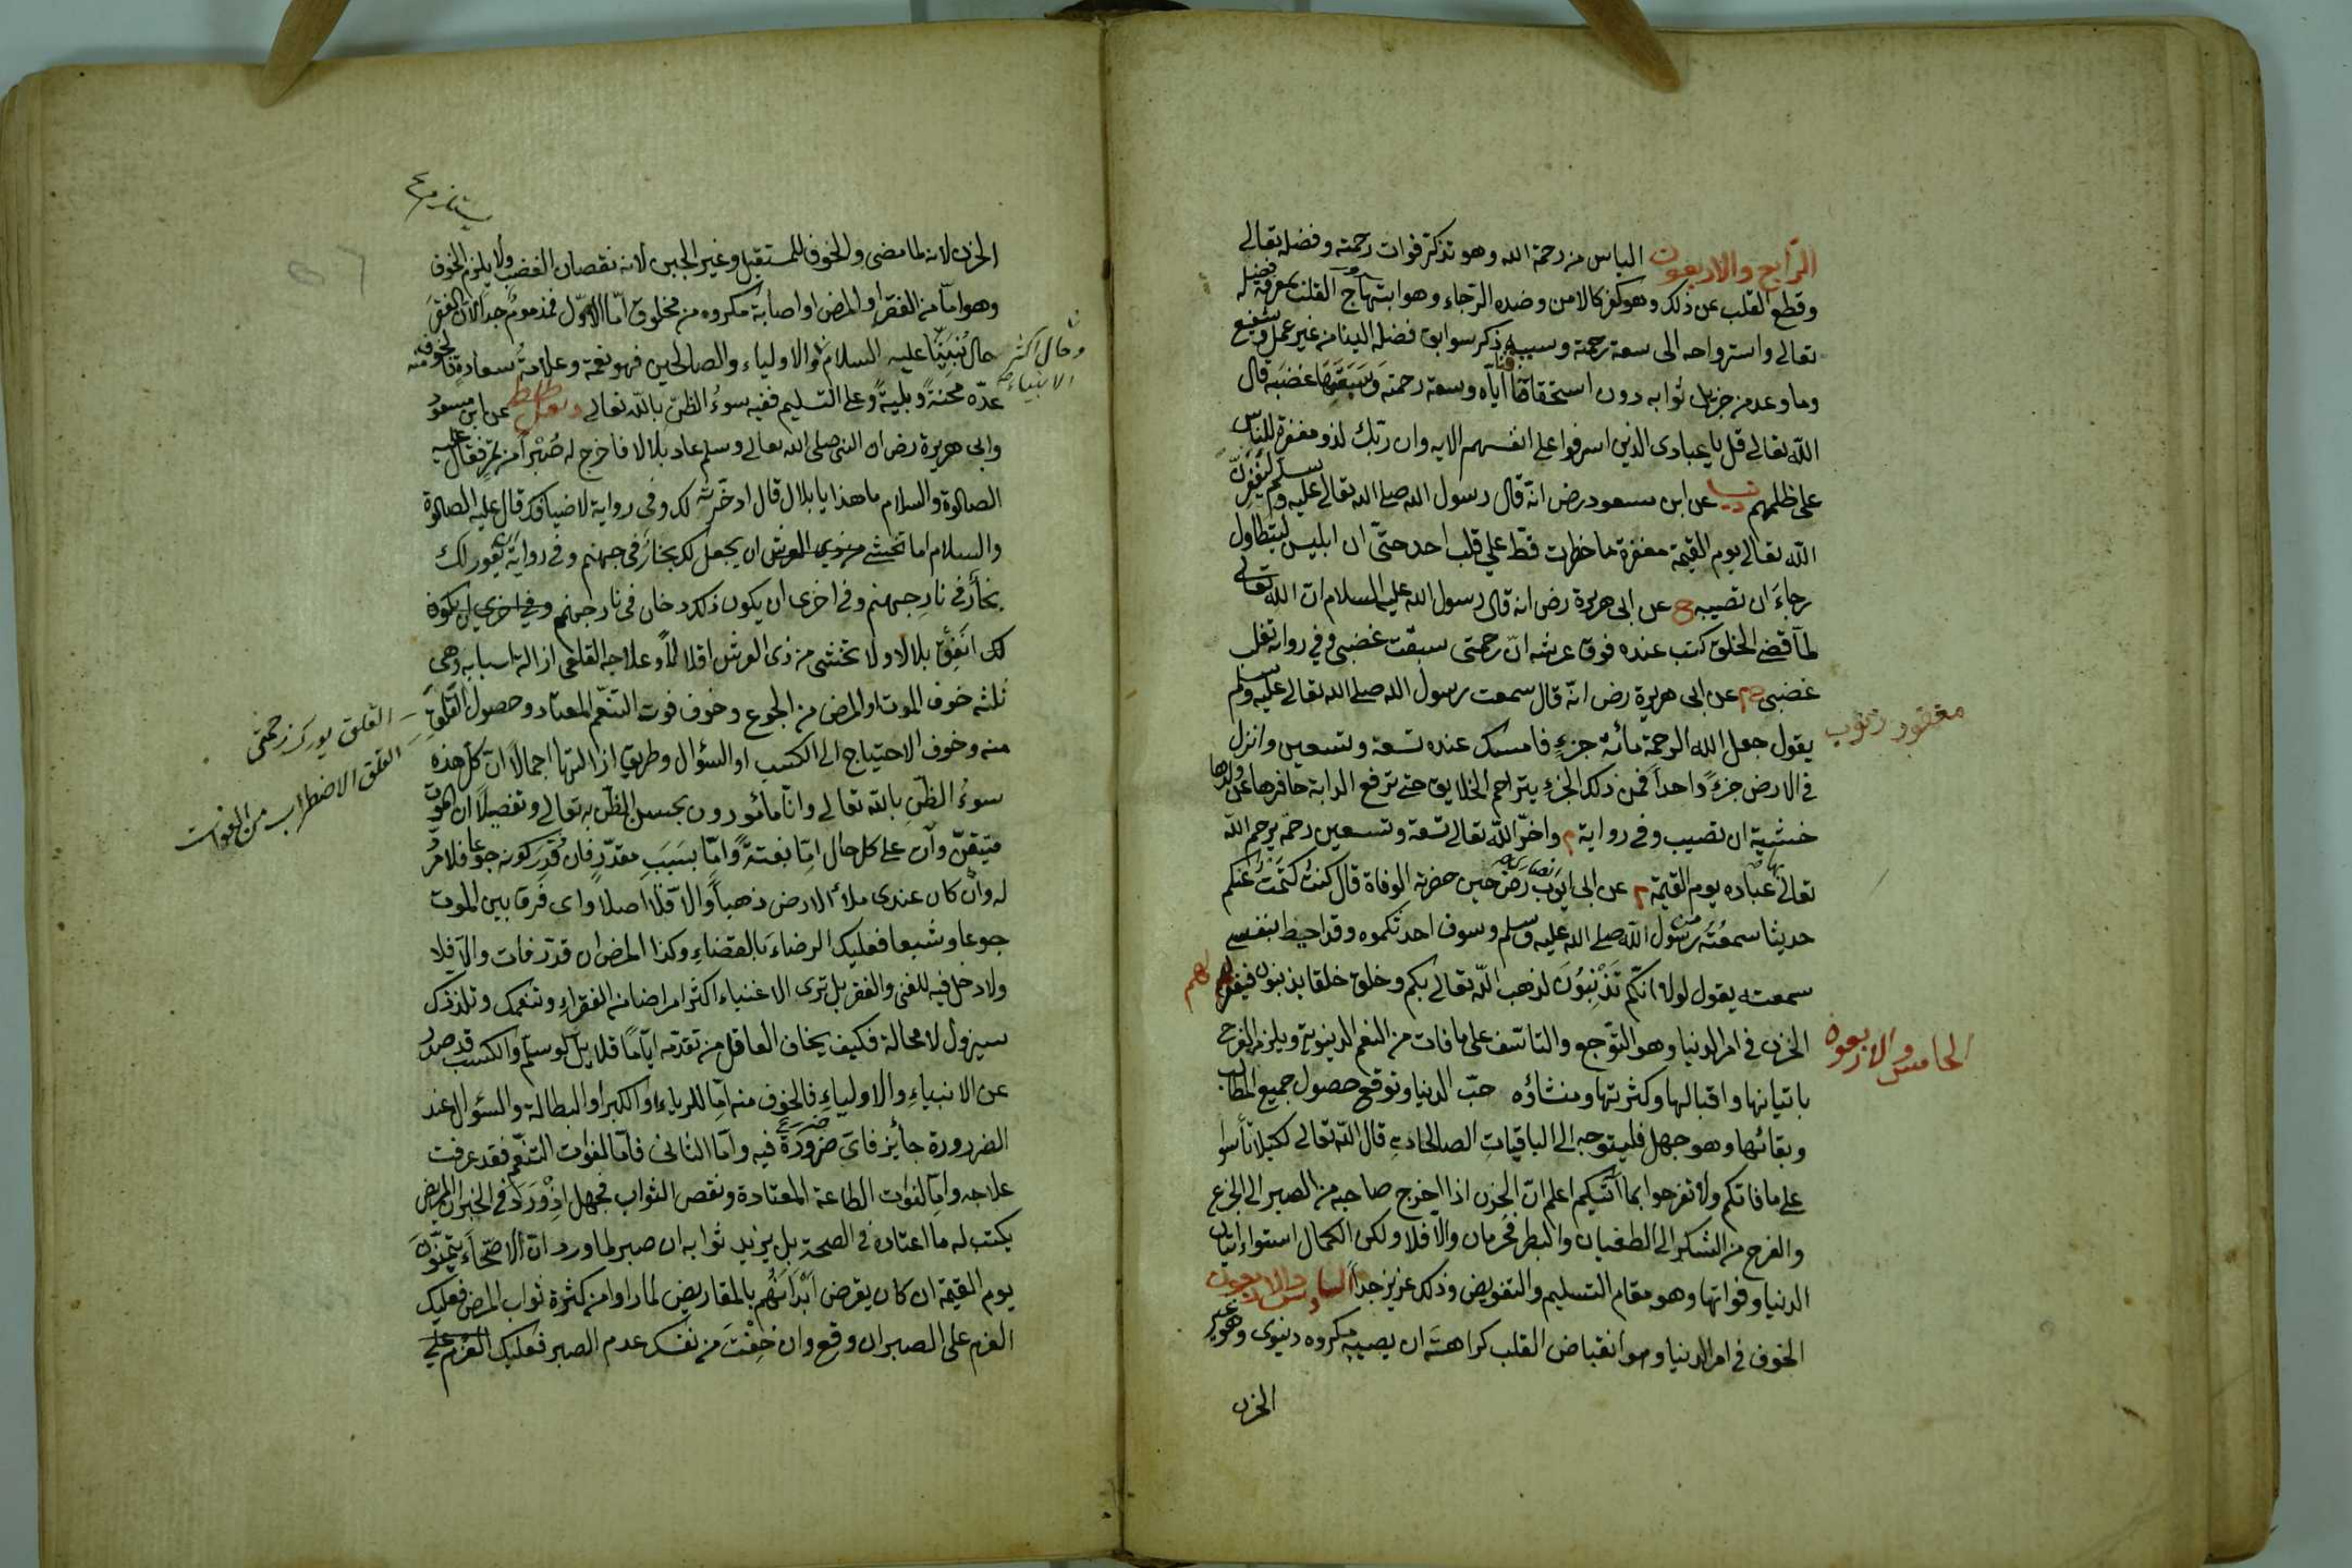 الرابع والاربعون الياس من رحمة الله وهو تذكر فوات رحمته وفضله تعالى
وقطع القلب عن ذلك وهو كفر كالامن وضده الرجاء وهو ابتهاج القلب بمعرفة فضله
تعالى واسترواحه الى سعة رحمته وسببه ذكر سوابق فضله الينا من غير عمل وشفيع
وما وعد من جزيل ثوابه دون استحقاقنا اياه وسعة رحمته وسبقها غضبه قال
الله تعالى قل يا عبادى الذين اسرفوا على انفسهم الايه وان ربك لذو مغفرة للناس
على ظلمهم دنيا عن ابن مسعود رض انه قال رسول الله صلى الله تعالى عليه وسلم ليغفرن
الله تعالى يوم القيمة مغفرة ما خطرت قط على قلب احد حتى ان ابليس ليتطاول
رجاء ان تصيبه خ عن ابى هريرة رض انه قال رسول الله عليه السلام ان الله تعالى
لما قضى الخلق كتب عنده فوق عرشه ان رحمتى سبقت غضبى وفى رواية تغلب
غضبى خ م عن ابى هريرة رض انه قال سمعت رسول الله صلى الله تعالى عليه وسلم
يقول جعل الله الرحمة مائة جزء فامسك عنده تسعة وتسعين وانزل
فى الارض جزءً واحداً فمن ذلك الجزء يتراحم الخلايق حتى ترفع الدابة حافرها عن ولدها
خشية ان تصيب وفى رواية م واخر الله تعالى تسعة وتسعين رحمة يرحم الله
تعالى بها عباده يوم القيمة م عن ابى ايوب انصارى رض حين حضرته الوفاة قال كنت كتمت عنكم
حديثا سمعته من رسول الله صلى الله عليه وسلم وسوف احدثكموه وقد احيط بنفسى
سمعته يقول لولا انكم تذنبون لذهب الله تعالى بكم وخلق خلقا يذنبون فيغفر لهم
الخامس والاربعون
الحزن فى امر الدنيا وهو التوجع والتاسف على ما فات من النعم الدنيوية ويلزم الفرح
باتيانها واقبالها وكثرتها ومنشاؤه حب الدنيا وتوقع حصول جميع المطالب
وبقائها وهو جهل فليتوجه الى الباقيات الصالحات قال الله تعالى لكيلا تأسوا
على ما فاتكم ولا تفرحوا بما آتيكم اعلم ان الحزن اذا اخرج صاحبه من الصبر الى الجزع
والفرح من الشكر الى الطغيان والبطر فحرمان والا فلا ولكن الكمال استواء اتيان
الدنيا وفواتها وهو مقام التسليم والتفويض وذلك عزيز جداً السادس والاربعون
الخوف فى امر الدنيا وهو انقباض القلب كراهة ان يصيبه مكروه دنيوى وهو غير
الحزن
الحزن لانه لما مضى والخوف للمستقبل وغير الجبن لانه نقصان الغضب ولا يلزم الخوف
وهو اما من الفقر او المرض او اصابة مكروه من مخلوق اما الاول فمذموم جداً لان الفقر
حال نبينا عليه السلام والاولياء والصالحين فهو نعمة وعلامة سعادة فالخوف منه
وحال اكثر
الانبياء
عده محنة وبلية وعلى التسليم ففيه سوء الظن بالله تعالى عن ابن مسعود
وابى هريرة رض ان النبى صلى الله تعالى وسلم عاد بلالا فاخرج له صبرا من تمر فقال عليه
الصلوة والسلام ما هذا يا بلال قال ادخرته لك وفى رواية لاضيافك قال عليه الصلوة
والسلام اما تخشى من ذى العرش ان يجعل لك بخار فى جهنم وفى رواية ان يفور لك
بخار فى نار جهنم وفى اخرى ان يكون ذلك دخان فى نار جهنم وفى اخرى ان يكون
لك انفق بلالا ولا تخشى من ذى العرش اقلالاً وعلاجه القلعى ازالة اسبابه وهى
ثلثه خوف الموت او المرض من الجوع وخوف فوت التنعم المعتاد وحصول القلق
القلق الاضطراب من الفوات
منه وخوف الاحتياج الى الكسب او السؤال وطريق ازالتها اجمالا ان كل هذه
سوء الظن بالله تعالى وانا مأمورون بحسن الظن به تعالى وتفصيلا ان الموت
متيقن وآت على كل حال اما بغتة واما بسبب مقدر فان قدر كونه جوعا فلا مرد
له وان كان عندى ملأ الارض ذهباً والا فلا اصلا واى فرق بين الموت
جوعا وشبعا فعليك الرضاء بالقضاء وكذا المرض ان قدر فآت والا فلا
ولا دخل فيه للغنى والفقر بل ترى الاغنياء اكثر امراضا من الفقراء وتنعمك وتلذذك
سيزول لا محالة فكيف يخاف العاقل من تقدمه اياما قلايل لو سلم والكسب قد صدر
عن الانبياء والاولياء فالخوف منه اما للرياء او الكبر او البطالة والسؤال عند
الضرورة جائز فاى ضرورة فيه واما الثانى فاما لفوات التنعم فقد عرفت
علاجه واما لفوات الطاعة المعتادة ونقص الثواب فجهل اذ ورد فى الخبر ان المريض
يكتب له ما اعتاده فى الصحة بل يزيد ثوابه ان صبر لما ورد ان الاصحاء يتمنون
يوم القيمة ان كان يقرض ابدانهم بالمقاريض لما راوا من كثرة ثواب المرض فعليك
العزم على الصبر ان وقع وان خفت من نفسك عدم الصبر فعليك العزم على